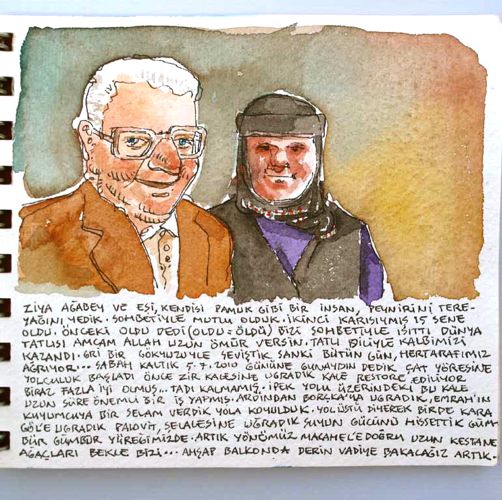 ZİYA AĞABEY VE EŞİ, KENDİSİ PAMUK GİBİ BİR İNSAN, PEYNİRİNİ TERE-
YAĞINI YEDİK. SOHBETİYLE MUTLU OLDUK. İKİNCİ KARISIYMIŞ 15 SENE
OLDU. ÖNCEKİ OLDU DEDİ (OLDU = ÖLDÜ) BİZİ SOHBETİYLE ISITTI DÜNYA
TATLISI AMCAM ALLAH UZUN ÖMÜR VERSİN. TATLI DİLİYLE KALBİMİZİ
KAZANDI. GRİ BİR GÖKYÜZÜYLE SEVİŞTİK SANKİ BÜTÜN GÜN, HER TARAFIMIZ
AĞRIYOR... SABAH KALTIK 5.7.2010 GÜNÜNE GÜNAYDIN DEDİK, ŞAT YÖRESİNE
YOLCULUK BAŞLADI ÖNCE ZİR KALESİNE UĞRADIK KALE RESTORE EDİLİYOR
BİRAZ FAZLA İYİ OLMUŞ.. TADI KALMAMIŞ, İPEK YOLU ÜZERİNDEKİ BU KALE
UZUN SÜRE ÖNEMLİ BİR İŞ YAPMIŞ. ARDINDAN BORÇKA'YA UĞRADIK, EMRAH'IN
KUYUMCUYA BİR SELAM VERDİK YOLA KOYULDUK. YOLÜSTÜ DİYEREK BİRDE KARA
GÖL'E UĞRADIK PALOVİT, ŞELALESİNE UĞRADIK SUYUN GÜCÜNÜ HİSSETTİK GÜM-
BÜR GÜMBÜR YÜREĞİMİZDE. ARTIK YÖNÜMÜZ MACAHEL'E DOĞRU UZUN KESTANE
AĞAÇLARI BEKLE BİZİ... AHŞAP BALKONDA DERİN VADİYE BAKACAĞIZ ARTIK.